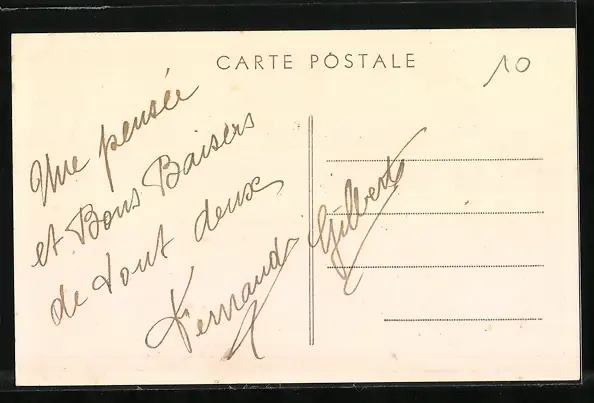 CARTE POSTALE
10
Une pensée
et Bons Baisers
de tout deux
Fernand Gilberte